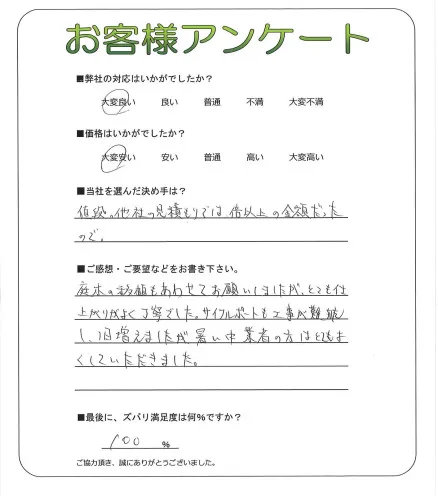 お客様アンケート
■弊社の対応はいかがでしたか？
大変良い 良い 普通 不満 大変不満
■価格はいかがでしたか？
大変安い 安い 普通 高い 大変高い
■当社を選んだ決め手は？
値段。他社の見積もりでは倍以上の金額だった
ので。
■ご感想・ご要望などをお書き下さい。
庭木の移植もあわせてお願いしましたが、とても仕
上がりがよく丁寧でした。サイクルポートも工事が難航
し、1日増えましたが暑い中業者の方はとてもよ
くしていただきました。
■最後に、ズバリ満足度は何%ですか？
100 %
ご協力頂き、誠にありがとうございました。